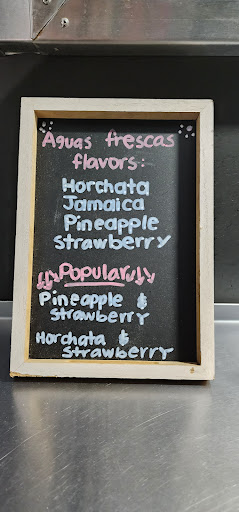 Aguas frescas
flavors:
Horchata
Jamaica
Pineapple
Strawberry
Popular
Pineapple &
Strawberry
Horchata &
Strawberry